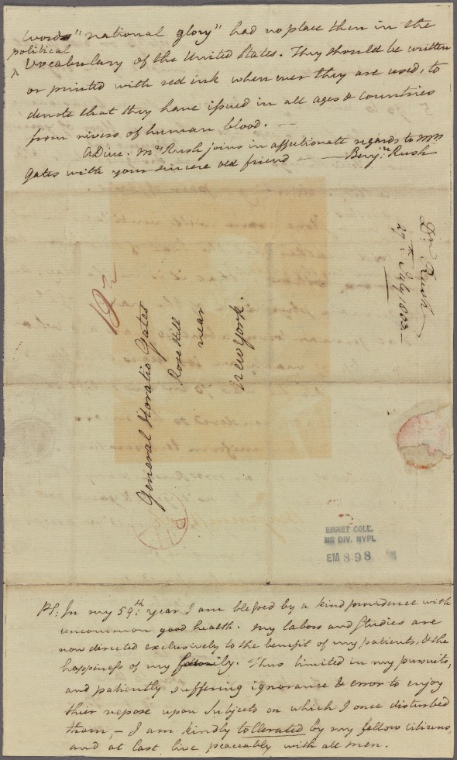 words "national glory" had no place then in the
political
^ Vocabulary of the United States. They should be written
or printed with red ink when ever they are used, to
denote that they have issued in all ages & countries
from rivers of human blood. —
Adieu. Mrs Rush joins in affectionate regards to Mrs
Gates with your sincere old friend — Benjn Rush
Dr Rush
27th July 1803
19
General Horatio Gates
Rose Hill
near
New York.
EMMET COLL.
MS DIV. NYPL
EM 898
PS: In my 59th year I am blessed by a kind providence with
uncommon good health. My labors and studies are
now directed exclusively to the benefit of my patients, & the
happiness of my family. Thus limited in my pursuits,
and patiently suffering ignorance & error to enjoy
their repose upon subjects on which I once disturbed
them, – I am kindly tollerated by my fellow citizens,
and at last live peaceably with all men.